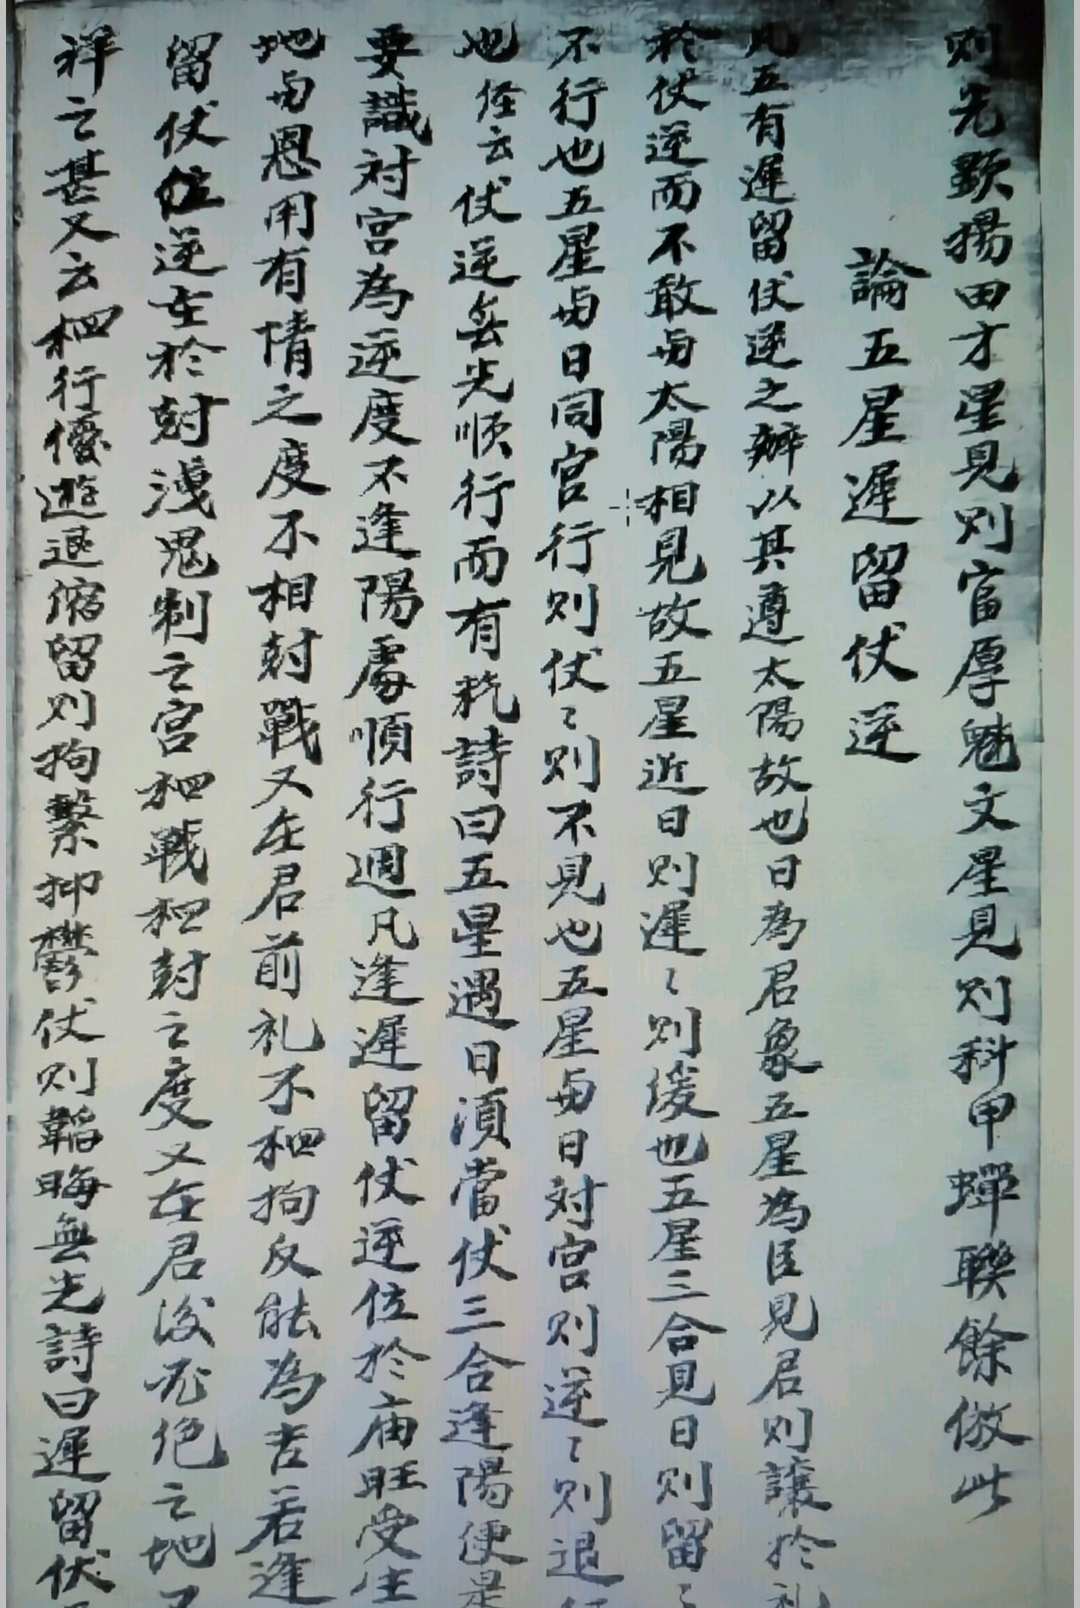 则先顯揚田才星見则富厚魁文星見则科甲蟬聯餘倣此
論五星遲留伏逆
凡五有遲留伏逆之辦以其遵太陽故也日為君象五星為臣見君则讓於礼
於伏逆而不敢与太陽相見故五星近日则遲〻则缓也五星三合見日则留〻
不行也五星与日同宫行则伏〻则不見也五星与日対宫则逆〻则退行
也经云伏逆無光順行而有㲺詩曰五星遇日須當伏三合逢陽便是
要識対宫為逆度不逢陽處順行週凡逢遲留伏逆位於庙旺受生
地与恩用有情之度不相尅戰又在君前礼不相拘反能為吉若逢
留伏位逆在於尅洩鬼制之宫相戰相尅之度又在君後死绝之地
祥之甚又云相行優遊退缩留则拘繫抑鬱伏则韜晦無光詩曰遲留伏